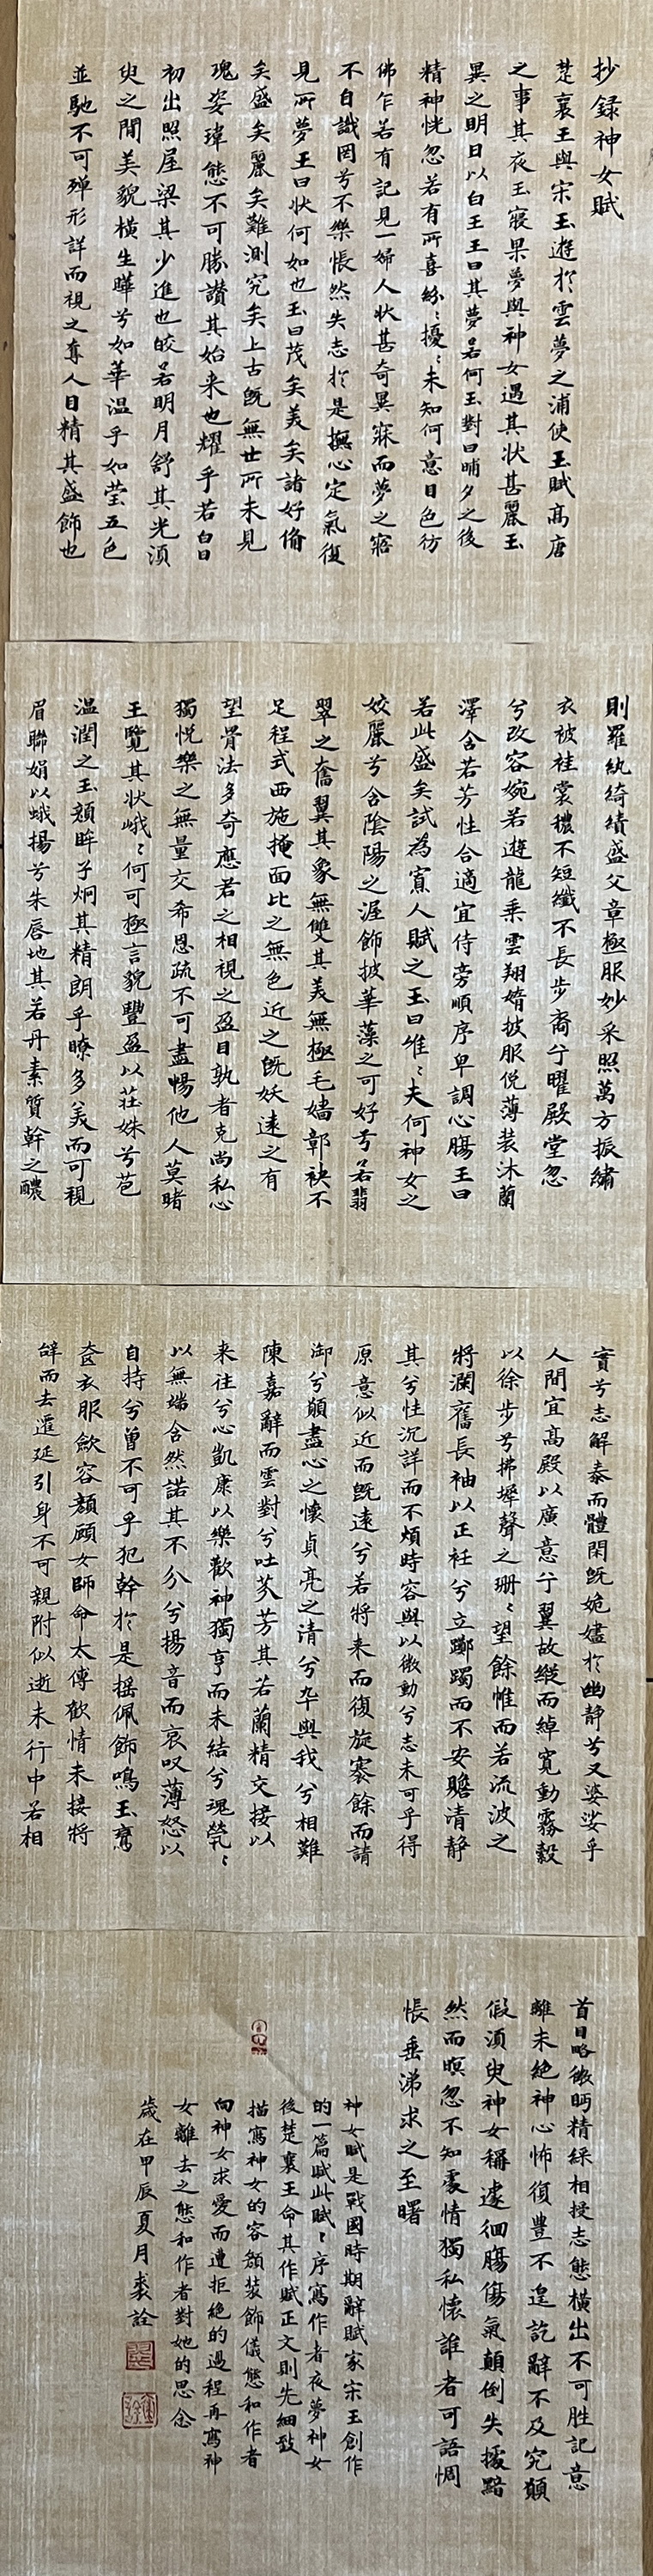 抄錄神女賦
楚襄王與宋玉遊於雲夢之浦使玉賦高唐
之事其夜玉寢果夢與神女遇其狀甚麗玉
異之明日以白王王曰其夢若何玉對曰晡夕之後
精神恍忽若有所喜紛〻擾〻未知何意目色彷
佛乍若有記見一婦人狀甚奇異寐而夢之寤
不自識罔兮不樂悵然失志於是撫心定氣復
見所夢王曰狀何如也玉曰茂矣美矣諸好備
矣盛矣麗矣難測究矣上古既無世所未見
瑰姿瑋態不可勝讚其始来也耀乎若白日
初出照屋梁其少進也皎若明月舒其光須
臾之間美貌橫生曄兮如華温乎如瑩五色
並馳不可殫形詳而視之奪人目精其盛飾也
則羅紈綺繢盛父章極服妙采照萬方振繡
衣被袿裳穠不短纖不長步裔兮曜殿堂忽
兮改容婉若遊龍乘雲翔嫷披服侻薄装沐蘭
澤含若芳性合適宜侍旁順序卑調心腸王曰
若此盛矣試為寡人賦之玉曰唯〻夫何神女之
姣麗兮含陰陽之渥飾披華藻之可好兮若翡
翠之奮翼其象無雙其美無極毛嬙鄣袂不
足程式西施掩面比之無色近之既妖遠之有
望骨法多奇應君之相視之盈目孰者克尚私心
獨悦樂之無量交希恩疏不可盡暢他人莫睹
王覽其狀峨〻何可極言貌豐盈以莊姝兮苞
温潤之玉顔眸子炯其精朗乎瞭多美而可視
眉聯娟以蛾揚兮朱唇地其若丹素質幹之醲
實兮志解泰而體閑既姽嫿於幽静兮又婆娑乎
人間宜高殿以廣意兮翼故縱而綽寛動霧縠
以徐步兮拂墀聲之珊〻望餘帷而若流波之
將瀾奮長袖以正衽兮立躑躅而不安瞻清静
其兮性沉詳而不煩時容與以微動兮志未可乎得
原意似近而既遠兮若將来而復旋褰餘而請
御兮願盡心之懷貞亮之清兮卒與我兮相難
陳嘉辭而雲對兮吐芬芳其若蘭精交接以
来往兮心凱康以樂歡神獨亨而未結兮瑰煢〻
以無端含然諾其不分兮揚音而哀叹薄怒以
自持兮曾不可乎犯幹於是摇佩飾鳴玉鸞
奩衣服斂容顔顧女師命太傅歡情未接將
辭而去遷延引身不可親附似逝未行中若相
首目略微眄精綵相授志態橫出不可胜記意
離未絶神心怖復豊不遑訖辭不及究願
假須臾神女稱遽徊腸傷氣顛倒失據黯
然而暝忽不知處情獨私懷誰者可語惆
悵垂涕求之至曙
神女賦是戰國時期辭賦家宋玉創作
的一篇賦此賦〻序寫作者夜夢神女
後楚襄王命其作賦正文則先細致
描寫神女的容顔装飾儀態和作者
向神女求愛而遭拒絶的過程再寫神
女離去之態和作者對她的思念
歲在甲辰夏月裘詮